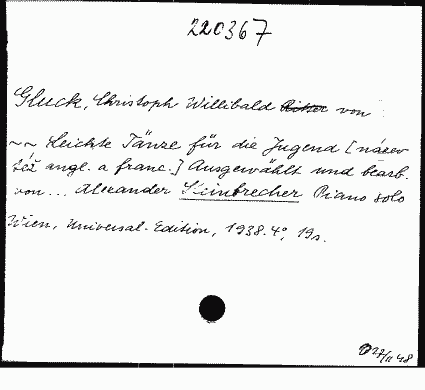 220367
Gluck, Christoph Willibald Ritter von
~~ Leichte Tänze für die Jugend [název
též angl. a franc.] Ausgewählt und bearb.
von... Alexander Steinbrecher Piano solo
Wien, Universal-Edition, 1938. 4°, 19s.
27/II 48